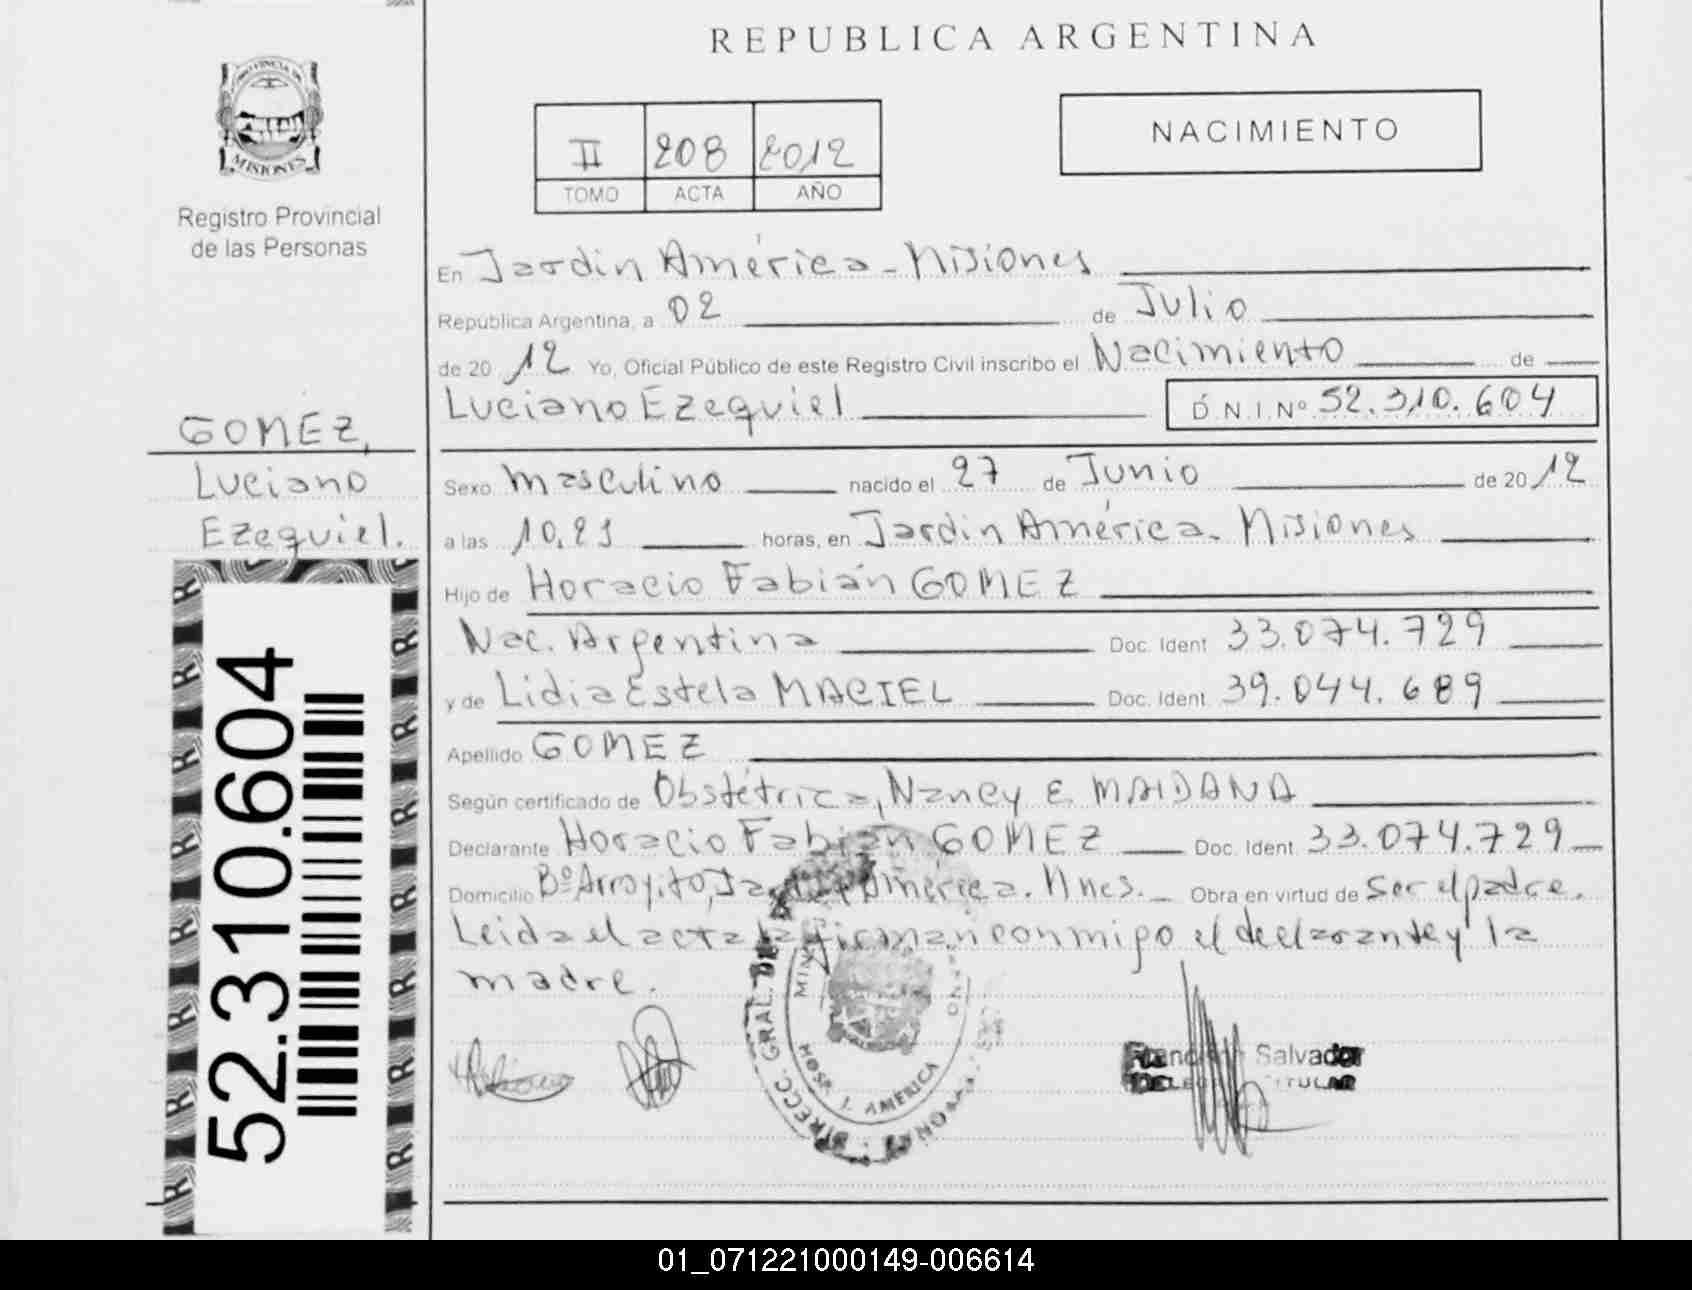 REPUBLICA ARGENTINA
NACIMIENTO
II 208 2012
TOMO ACTA AÑO
PROVINCIA DE
MISIONES
Registro Provincial
de las Personas
GOMEZ,
Luciano
Ezequiel.
52.310.604
En Jardin América - Misiones
República Argentina, a 02 de Julio
de 20 12 Yo, Oficial Público de este Registro Civil inscribo el Nacimiento de
Luciano Ezequiel D.N.I. Nº 52.310.604
Sexo masculino nacido el 27 de Junio de 20 12
a las 10,21 horas, en Jardin América - Misiones
Hijo de Horacio Fabián GOMEZ
Nac. Argentina Doc. Ident 33.074.729
y de Lidia Estela MACIEL Doc. Ident. 39.044.689
Apellido GOMEZ
Según certificado de Obstétrica, Nancy E MAIDANA
Declarante Horacio Fabián GOMEZ Doc. Ident. 33.074.729
Domicilio Bº Arroyito, Jardin América. Mnes. Obra en virtud de ser el padre.
Leida el acta la firman conmigo el declarante y la
madre.
DIRECC. GRAL. DEL
HOSP. J. AMERICA
Salvador
TITULAR
01_071221000149-006614